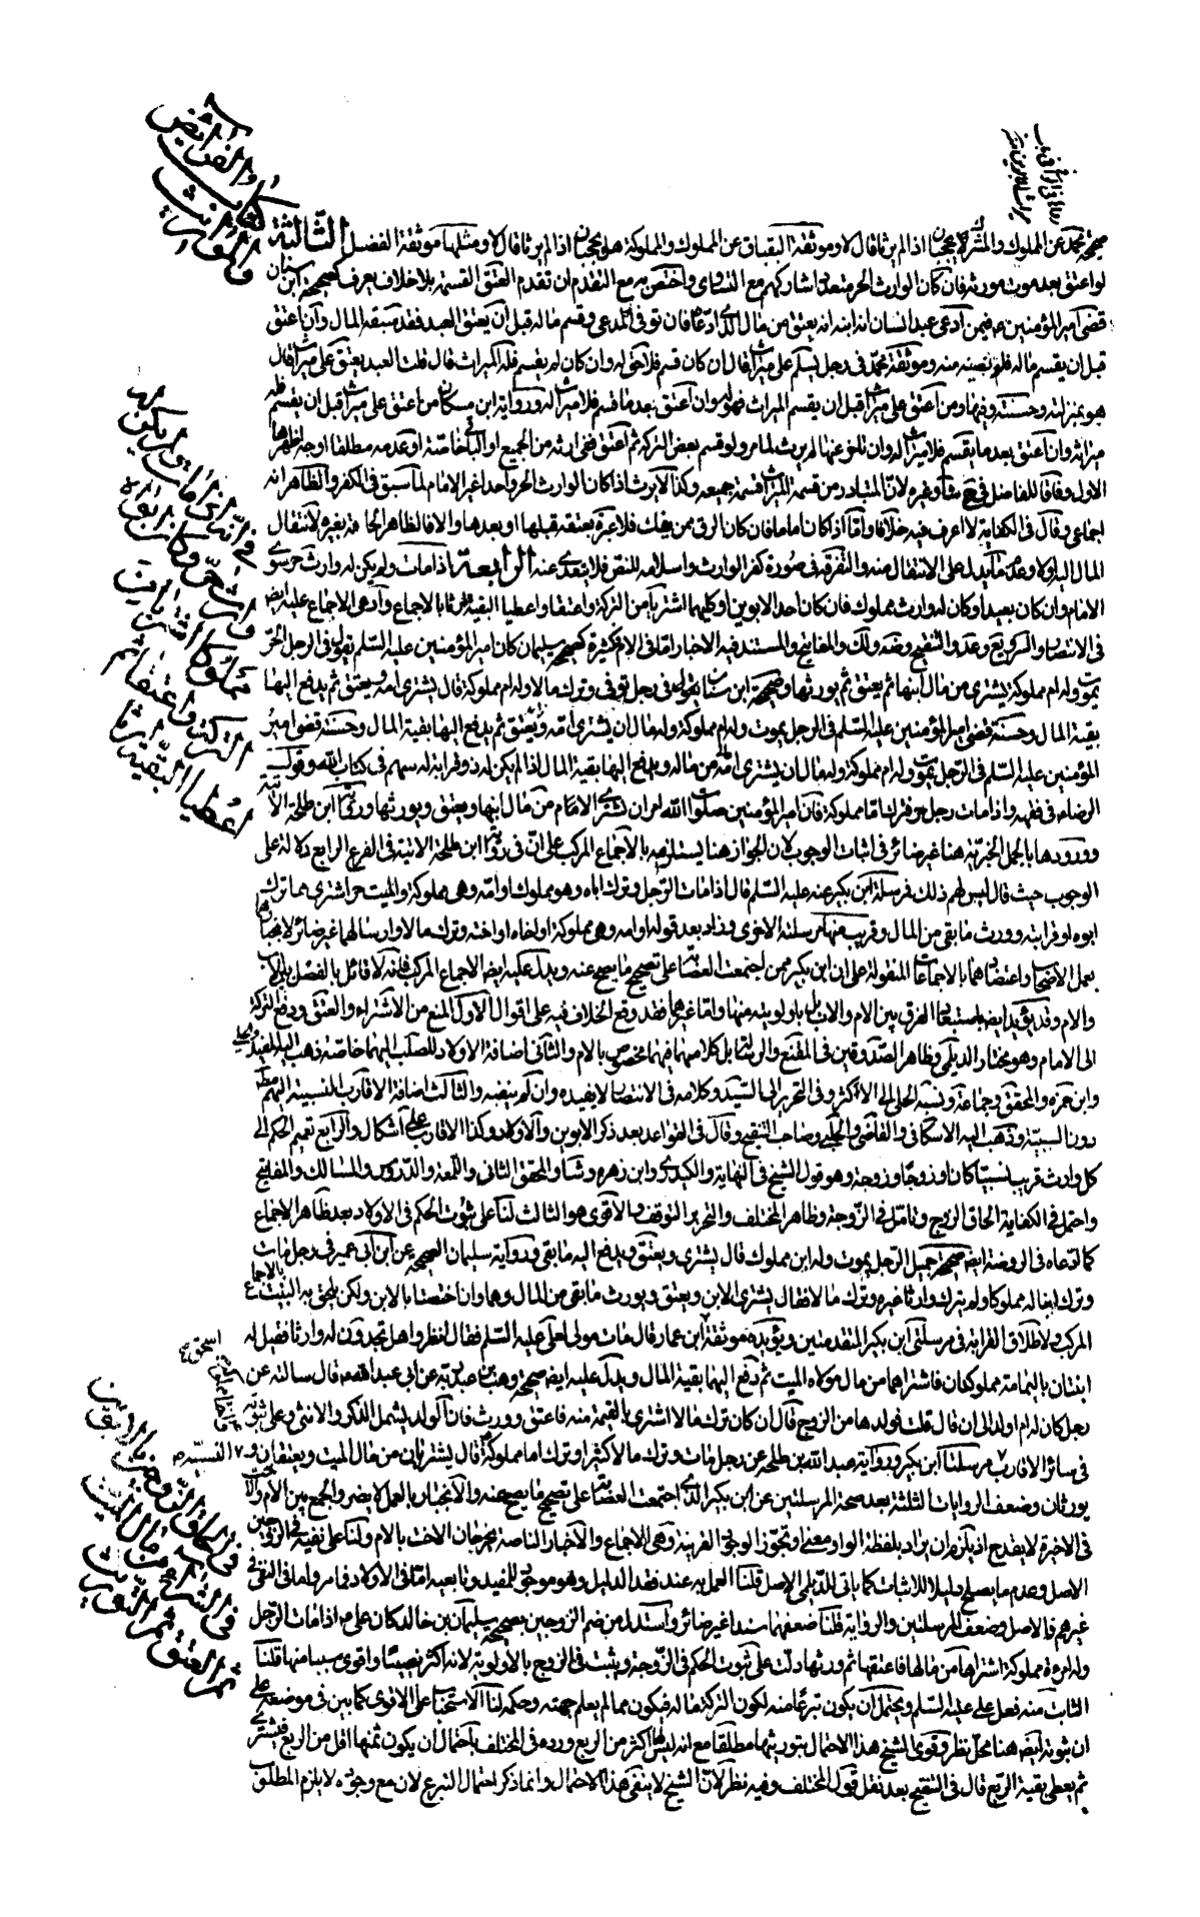 كتاب الفرائض
والمواريث
صحيحة محمد عن المملوك والمشرك يحجبان اذا لم يرثا قال لا وموثقة البقباق عن المملوك والمملوكة هل يحجبان اذا لم يرثا قال لا ومثلها موثقة الفضل الثالثة
لو اعتق بعد موت مورثه فان كان الوارث الحر متعددا شاركهم مع التساوي واختص به مع التقدم ان تقدم العتق القسمة بلا خلاف يعرف كصحيحة ابن سنان
قضى امير المؤمنين ع فيمن ادعى عبد انسان انه ابنه انه يعتق من مال الذي ادعاه فان توفى المدعي وقسم ماله قبل ان يعتق العبد فقد سبقه المال وان اعتق
قبل ان يقسم ماله فله نصيبه منه وموثقة محمد في رجل يسلم على ميراث قال ان كان قسم فلا حق له وان كان لم يقسم فله الميراث قال قلت العبد يعتق على ميراث قال
هو بمنزلته وحسنته وفيها ومن اعتق على ميراث قبل ان يقسم الميراث فهو له وان اعتق بعد ما قسم فلا ميراث له ورواية ابن مسكان من اعتق على ميراث قبل ان يقسم فله
ميراثه وان اعتق بعد ما يقسم فلا ميراث له وان تاخر عنها لم يرث لما مر ولو قسم بعض التركة ثم اعتق ففي ارثه من الجميع او الباقي خاصة او عدمه مطلقا اوجه اظهرها
الاول وفاقا للفاضل في وغيره لان المتبادر من قسمة الميراث قسمة جميعه وكذا لا يرث اذا كان الوارث الحر واحدا غير الامام لما سبق في الكفر والظاهر انه
اجماعي وقال في الكفاية لا اعرف فيه خلافا واما اذا كان اماما فان كان الرق ممن يفك فلا عبرة بعتقه قبلها او بعدها والا فالظاهر الحاقه بغيره لانتقال
المال اليه اولا وعدم ما يدل على الانتقال منه والتفرقة في صورة كفر الوارث واسلامه للنص فلا يتعدى عنه الرابعة اذا مات ولم يكن له وارث حر سوى
الامام وان كان بعيدا وكان له وارث مملوك فان كان احد الابوين او كليهما اشتريا من التركة واعتقا واعطيا البقية ارثا بالاجماع وادعى الاجماع عليه ايضا
في الانتصار والسرائر والتنقيح وضه ولك والمفاتيح والمستند فيه الاخبار اما في الام فكثيرة كصحيحة سليمان كان امير المؤمنين عليه السلم يقول في الرجل الحر
يموت وله ام مملوكة يشترى من مال ابنها ثم يعتق ثم يورثها وصحيحة ابن سنان يقول في رجل توفى وترك مالا وله ام مملوكة قال يشترى امه ويعتق ثم يدفع اليها
بقية المال وحسنة قضى امير المؤمنين عليه السلم في الرجل يموت وله ام مملوكة وله مال ان يشترى امه ويعتق ثم يدفع اليها بقية المال وحسنة قضى امير
المؤمنين عليه السلم في الرجل يموت وله ام مملوكة وله مال ان يشترى امه من ماله ويدفع اليها بقية المال اذا لم يكن له ذو قرابة له سهم في كتاب الله وقول
الرضا ع في فقهه واذا مات رجل حر فترك اما مملوكة فان امير المؤمنين صلوات الله امر ان يشترى الام من مال ابنها ويعتق ويورثها ورواية ابن طلحة الاتية
وورودها بالجمل الخبرية هنا غير ضائر في اثبات الوجوب لان الجواز هنا يستلزمه بالاجماع المركب على ان في رواية ابن طلحة الاتية في الفرع الرابع دلالة على
الوجوب حيث قال ليس لهم ذلك فمرسلة ابن بكير عنه عليه السلم قال اذا مات الرجل وترك اباه وهو مملوك او امه وهي مملوكة والميت حر اشترى مما ترك
ابوه او قرابته وورث ما بقي من المال وقريب منها مرسلته الاخرى وزاد بعد قوله او امه وهي مملوكة او اخاه او اخته وترك مالا وارسالهما غير ضائر لانجبارهما
بعمل الاصحاب واعتضادهما بالاجماعات المنقولة على ان ابن بكير ممن اجتمعت العصابة على تصحيح ما يصح عنه ويدل عليه ايضا الاجماع المركب فانه لا قائل بالفصل بين الاب
والام وقد يؤيد ايضا باستبعاد الفرق بين الام والاب بل باولويته منها واما غيرهما فقد وقع الخلاف فيه على اقوال الاول المنع من الاشتراء والعتق ودفع التركة
الى الامام وهو مختار الديلمي وظاهر الصدوقين في المقنع والرسالة بل كلامهما فيهما مخصوص بالام والثاني اضافة الاولاد للصلب اليهما خاصة ذهب اليه المفيد والحلي
وابن حمزة والمحقق وجماعة ونسبه الحلي الى الاكثر وفي التحرير الى السيد وكلامه في الانتصار لا يفيده وان لم ينفه والثالث اضافة الاقارب النسبية اليهم مطلقا
دون السببية وذهب اليه الاسكافي والقاضي والحلبي وصاحب التنقيح وقال في القواعد بعد ذكر الابوين والاولاد وكذا الاقارب على اشكال والرابع تعميم الحكم الى
كل وارث قريب نسبيا كان او زوجا وزوجة وهو قول الشيخ في النهاية والكيدري وابن زهره والمحقق الثاني واللمعة والدروس والمسالك والمفاتيح
واحتمل في الكفاية الحاق الزوج وتامل في الزوجة وظاهر المختلف والتحرير التوقف والاقوى هو الثالث لنا على ثبوت الحكم في الاولاد بعد ظاهر الاجماع
كما ادعاه في الروضة ايضا صحيحة جميل الرجل يموت وله ابن مملوك قال يشترى ويعتق ويدفع اليه ما بقي ورواية سليمان الصحيحة عن ابن ابي عمير في رجل مات
وترك ابنا له مملوكا ولم يترك وارثا غيره وترك مالا فقال يشترى الابن ويعتق ويورث ما بقي من المال وهما وان اختصتا بالابن ولكن يلحق به البنت بالاجماع
المركب ولاطلاق القرابة في مرسلتي ابن بكير المتقدمتين ويؤيده موثقة ابن عمار قال مات مولى لعلي عليه السلم فقال انظروا هل تجدون له وارثا فقيل له
ابنتان باليمامة مملوكتان فاشتراهما من مال مولاه الميت ثم دفع اليهما بقية المال ويدل عليه ايضا صحيحة وهب بن عبد ربه عن ابي عبد الله ع قال سالته عن
رجل كان له ام ولد الى ان قال قلت فولدها من الزوج قال ان كان ترك مالا اشترى بالقيمة منه فاعتق وورث فان الولد يشمل الذكر والانثى وعلى ثبوته
في سائر الاقارب مرسلتا ابن بكير ورواية عبد الله بن طلحة عن رجل مات وترك مالا كثيرا وترك اما مملوكة قال يشتريان من مال الميت ويعتقان و
يورثان وضعف الروايات الثلثة بعد صحة المرسلتين عن ابن بكير الذي اجتمعت العصابة على تصحيح ما يصح عنه والانجبار بالعمل لا يضر والجمع بين الام والاخت
في الاخيرة لا يقدح اذ يلزم ان يراد بلفظة الواو معنى او تجوزا لوجود القرينة وهي الاجماع والاخبار الناصة بحرمان الاخت بالام ولنا على نفيه في الزوجين
الاصل وعدم ما يصلح دليلا للاثبات كما ياتي للديلمي الاصل قلنا العمل به عند فقد الدليل وهو موجود للمفيد وتابعيه اما في الاولاد فما مر واما في النفي في
غيرهم فالاصل وضعف المرسلتين والرواية قلنا ضعفهما سندا غير ضائر واستدل من ضم الزوجين بصحيحة سليمان بن خالد كان علي ع اذا مات الرجل
وله امرءة مملوكة اشتراها من مالها فاعتقها ثم ورثها دلت على ثبوت الحكم في الزوجة ويثبت في الزوج بالاولوية لانه اكثر نصيبا واقوى سببا منها قلنا
الثابت منه فعل علي عليه السلم ويحتمل ان يكون تبرعا منه لكون التركة ماله فيكون مما لم يعلم جهته وحكمه لنا الاستحباب على الاقوى كما بين في موضعه على
ان ثبوته ايضا هنا محل نظر وقوى الشيخ هذا الاحتمال بتوريثها مطلقا مع انه ليس لها اكثر من الربع ورده في المختلف باحتمال ان يكون ثمنها اقل من الربع فيشترى
ثم يعطى بقية الربع قال في التنقيح بعد نقل قول المختلف وفيه نظر لان الشيخ لا ينفي هذا الاحتمال وانما ذكر احتمال التبرع لان مع وجوده لا يلزم المطلق
في انه اذا مات ولم يكن له
وارث حر وكان ابواه
مملوكا اشتريا من
التركة واعتقا ثم
اعطيا البقية ارثا
في الحاق الزوجين بالابوين
في الشراء من مال الميت
ثم العتق ثم التوريث